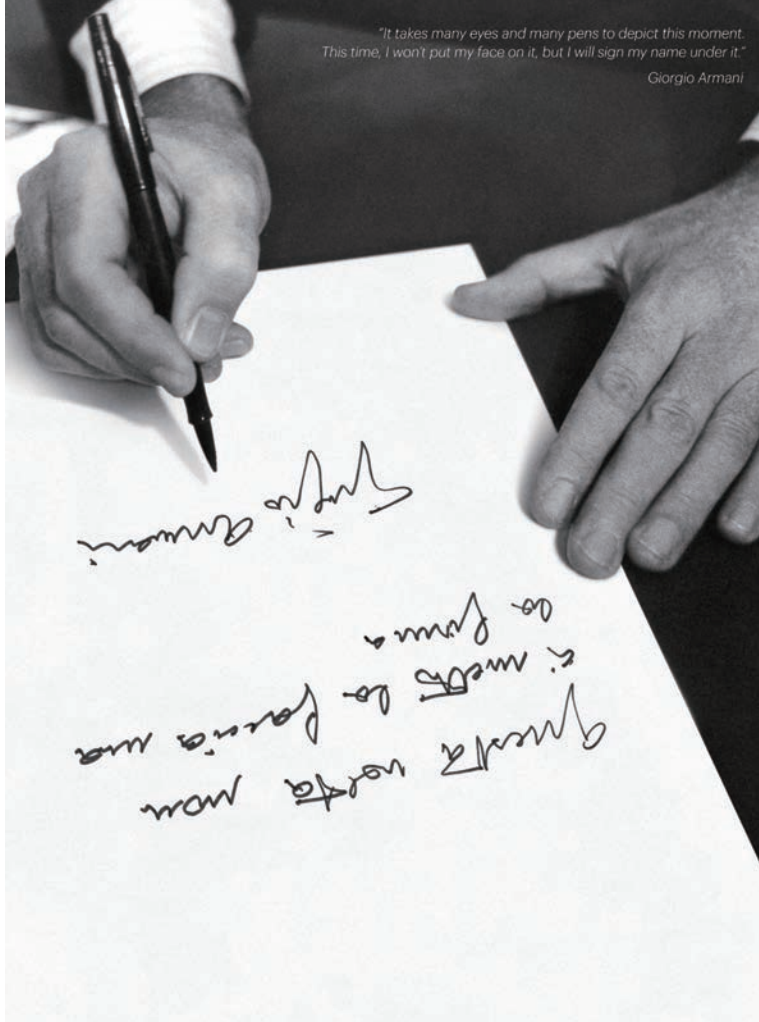 "It takes many eyes and many pens to depict this moment.
This time, I won't put my face on it, but I will sign my name under it."
Giorgio Armani
Questa volta non
ci metto la faccia ma
la firma
Giorgio Armani